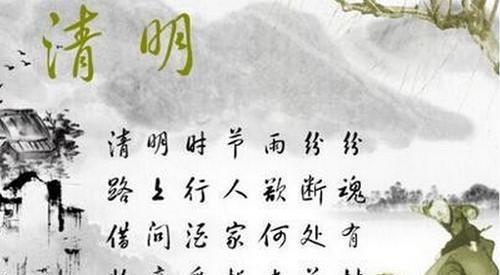 清明
清明时节雨纷纷
路上行人欲断魂
借问酒家何处有